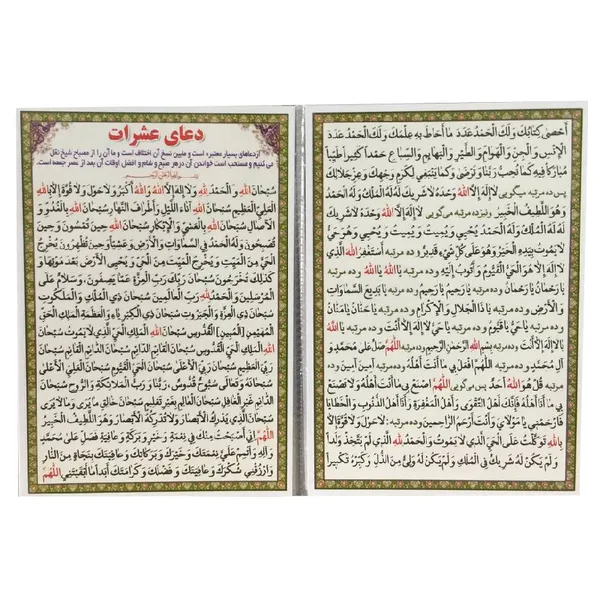 دعای عشرات
ازدعاهای بسیار معتبره است و مابین نسخ آن اختلاف است و ما آن را از مصباح شیخ نقل
می کنیم و مستحب است خواندن آن درهر صبح و شام و افضل اوقات آن بعد از عصر جمعه است.
سُبْحَانَ اللهِ وَ الْحَمْدُ لِلهِ وَ لَا إِلهَ إِلَّا اللهُ وَ اللهُ أَكْبَرُ وَ لَا حَوْلَ وَ لَا قُوَّةَ إِلَّا بِاللهِ
الْعَلِيِّ الْعَظِيمِ سُبْحَانَ اللهِ آنَاءَ اللَّيْلِ وَ أَطْرَافَ النَّهَارِ سُبْحَانَ اللهِ بِالْغُدُوِّ وَ
الْآصَالِ سُبْحَانَ اللهِ بِالْعَشِيِّ وَ الْإِبْكَارِ سُبْحَانَ اللهِ حِينَ تُمْسُونَ وَ حِينَ
تُصْبِحُونَ وَ لَهُ الْحَمْدُ فِي السَّمَاوَاتِ وَ الْأَرْضِ وَ عَشِيًّا وَ حِينَ تُظْهِرُونَ يُخْرِجُ
الْحَيَّ مِنَ الْمَيِّتِ وَ يُخْرِجُ الْمَيِّتَ مِنَ الْحَيِّ وَ يُحْيِي الْأَرْضَ بَعْدَ مَوْتِهَا وَ
كَذَلِكَ تُخْرَجُونَ سُبْحَانَ رَبِّكَ رَبِّ الْعِزَّةِ عَمَّا يَصِفُونَ، وَ سَلَامٌ عَلَى
الْمُرْسَلِينَ وَ الْحَمْدُ لِلهِ رَبِّ الْعَالَمِينَ سُبْحَانَ ذِي الْمُلْكِ وَ الْمَلَكُوتِ
سُبْحَانَ ذِي الْعِزَّةِ وَ الْجَبَرُوتِ سُبْحَانَ ذِي الْكِبْرِيَاءِ وَ الْعَظَمَةِ الْمَلِكِ الْحَقِّ
الْمُهَيْمِنِ [الْمُبِينِ] الْقُدُّوسِ سُبْحَانَ اللهِ الْمَلِكِ الْحَيِّ الَّذِي لَا يَمُوتُ سُبْحَانَ
اللهِ الْمَلِكِ الْحَيِّ الْقُدُّوسِ سُبْحَانَ الْقَائِمِ الدَّائِمِ سُبْحَانَ الدَّائِمِ الْقَائِمِ سُبْحَانَ
رَبِّيَ الْعَظِيمِ سُبْحَانَ رَبِّيَ الْأَعْلَى سُبْحَانَ الْحَيِّ الْقَيُّومِ سُبْحَانَ الْعَلِيِّ الْأَعْلَى
سُبْحَانَهُ وَ تَعَالَى سُبُّوحٌ قُدُّوسٌ، رَبُّنَا وَ رَبُّ الْمَلَائِكَةِ وَ الرُّوحِ سُبْحَانَ
الدَّائِمِ غَيْرِ الْغَافِلِ سُبْحَانَ الْعَالِمِ بِغَيْرِ تَعْلِيمٍ سُبْحَانَ خَالِقِ مَا يُرَى وَ مَا لَا يُرَى
سُبْحَانَ الَّذِي يُدْرِكُ الْأَبْصَارَ وَ لَا تُدْرِكُهُ الْأَبْصَارُ وَ هُوَ اللَّطِيفُ الْخَبِيرُ
اللهُمَّ إِنِّي أَصْبَحْتُ مِنْكَ فِي نِعْمَةٍ وَ خَيْرٍ وَ بَرَكَةٍ وَ عَافِيَةٍ فَصَلِّ عَلَى مُحَمَّدٍ
وَ آلِهِ وَ أَتْمِمْ عَلَيَّ نِعْمَتَكَ وَ خَيْرَكَ وَ بَرَكَاتِكَ وَ عَافِيَتَكَ بِنَجَاةٍ مِنَ النَّارِ
وَ ارْزُقْنِي شُكْرَكَ وَ عَافِيَتَكَ وَ فَضْلَكَ وَ كَرَامَتَكَ أَبَداً مَا أَبْقَيْتَنِي اللهُمَّ
أَحْصَى كِتَابُكَ وَ لَكَ الْحَمْدُ عَدَدَ مَا أَحَاطَ بِهِ عِلْمُكَ وَ لَكَ الْحَمْدُ عَدَدَ
الْإِنْسِ وَ الْجِنِّ وَ الْهَوَامِّ وَ الطَّيْرِ وَ الْبَهَائِمِ وَ السِّبَاعِ حَمْداً كَثِيراً طَيِّباً
مُبَارَكاً فِيهِ كَمَا تُحِبُّ رَبَّنَا وَ تَرْضَى وَ كَمَا يَنْبَغِي لِكَرَمِ وَجْهِكَ وَ عِزِّ جَلَالِكَ
پس ده مرتبه می گویی لَا إِلَهَ إِلَّا اللهُ وَحْدَهُ لَا شَرِيكَ لَهُ لَهُ الْمُلْكُ وَ لَهُ الْحَمْدُ
وَ هُوَ اللَّطِيفُ الْخَبِيرُ ونیزده مرتبه می گویی لَا إِلَهَ إِلَّا اللهُ وَحْدَهُ لَا شَرِيكَ
لَهُ لَهُ الْمُلْكُ وَ لَهُ الْحَمْدُ يُحْيِي وَ يُمِيتُ وَ يُمِيتُ وَ يُحْيِي وَ هُوَ حَيٌّ
لَا يَمُوتُ بِيَدِهِ الْخَيْرُ وَ هُوَ عَلَى كُلِّ شَيْءٍ قَدِيرٌ و ده مرتبه أَسْتَغْفِرُ اللهَ الَّذِي
لَا إِلَهَ إِلَّا هُوَ الْحَيُّ الْقَيُّومُ وَ أَتُوبُ إِلَيْهِ و ده مرتبه يَا اللهُ يَا اللهُ و ده مرتبه
يَا رَحْمَانُ يَا رَحْمَانُ و ده مرتبه يَا رَحِيمُ يَا رَحِيمُ و ده مرتبه يَا بَدِيعَ السَّمَاوَاتِ
وَ الْأَرْضِ و ده مرتبه يَا ذَا الْجَلَالِ وَ الْإِكْرَامِ و ده مرتبه يَا حَنَّانُ يَا مَنَّانُ
و ده مرتبه يَا حَيُّ يَا قَيُّومُ و ده مرتبه يَا حَيُّ لَا إِلَهَ إِلَّا أَنْتَ و ده مرتبه يَا اللهُ
يَا لَا إِلَهَ إِلَّا أَنْتَ و ده مرتبه بِسْمِ اللهِ الرَّحْمَنِ الرَّحِيمِ و ده مرتبه اللهُمَّ صَلِّ عَلَى مُحَمَّدٍ وَ
آلِ مُحَمَّدٍ و ده مرتبه اللهُمَّ افْعَلْ بِي مَا أَنْتَ أَهْلُهُ و ده مرتبه آمِينَ آمِينَ و ده
مرتبه قُلْ هُوَ اللهُ أَحَدٌ پس می گویی اللهُمَّ اصْنَعْ بِي مَا أَنْتَ أَهْلُهُ وَ لَا تَصْنَعْ
بِي مَا أَنَا أَهْلُهُ فَإِنَّكَ أَهْلُ التَّقْوَى وَ أَهْلُ الْمَغْفِرَةِ وَ أَنَا أَهْلُ الذُّنُوبِ وَ الْخَطَايَا
فَارْحَمْنِي يَا مَوْلَايَ وَ أَنْتَ أَرْحَمُ الرَّاحِمِينَ و ده مرتبه: لَا حَوْلَ وَ لَا قُوَّةَ إِلَّا
بِاللهِ تَوَكَّلْتُ عَلَى الْحَيِّ الَّذِي لَا يَمُوتُ وَ الْحَمْدُ لِلهِ الَّذِي لَمْ يَتَّخِذْ وَلَداً
وَ لَمْ يَكُنْ لَهُ شَرِيكٌ فِي الْمُلْكِ وَ لَمْ يَكُنْ لَهُ وَلِيٌّ مِنَ الذُّلِّ وَ كَبِّرْهُ تَكْبِيراً